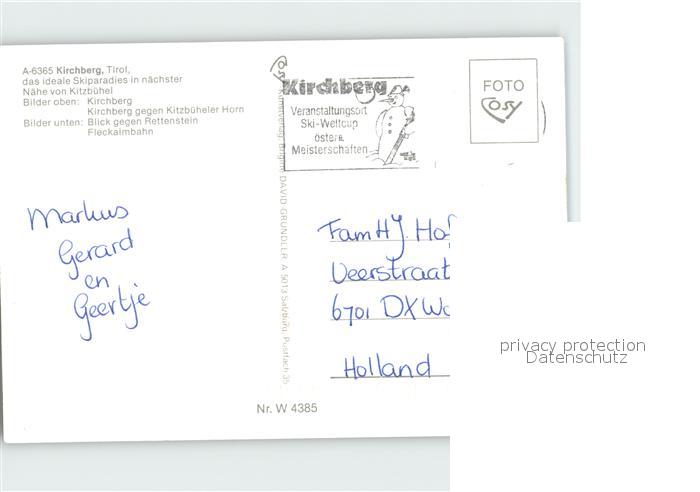 A-6365 Kirchberg, Tirol,
das ideale Skiparadies in nächster
Nähe von Kitzbühel
Bilder oben: Kirchberg
Kirchberg gegen Kitzbüheler Horn
Bilder unten: Blick gegen Rettenstein
Fleckalmbahn
Kirchberg
Veranstaltungsort
Ski-Weltcup
österr.
Meisterschaften
FOTO
cosy
Kunstverlag Brigitte DAVID GRUNDLER A 5013 Salzburg, Postfach 35
Markus
Gerard
en
Geertje
Fam HJ. Ho
Veerstraat
6701 DX Wa
Holland
Nr. W 4385
privacy protection
Datenschutz